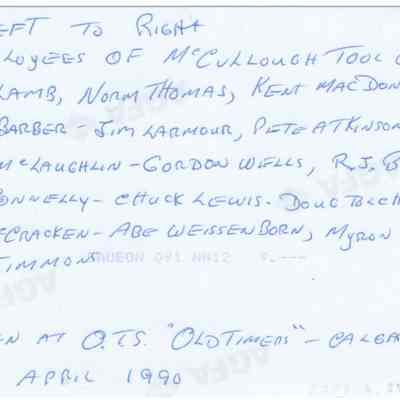 EFT TO RIGHT
LOYEES OF MCCULLOUGH TOOL C
LAMB, NORM THOMAS, KENT MACDON
BARBER - JIM LARMOUR, PETE ATKINSON
MCLAUGHLIN - GORDON WELLS, R.J. B
ONNELLY - CHUCK LEWIS. DOUG
CRACKEN - ABE WEISSENBORN, MYRON
TIMMONS
NN12 9.---
EN AT O.T.S. "OLDTIMERS" - CALGA
APRIL 1990
AGFA
AGFA
AGFA
AGFA